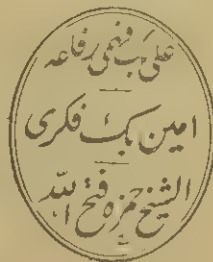 علي بك فهمي رفاعه
امين بك فكرى
الشيخ حمزه فتح الله